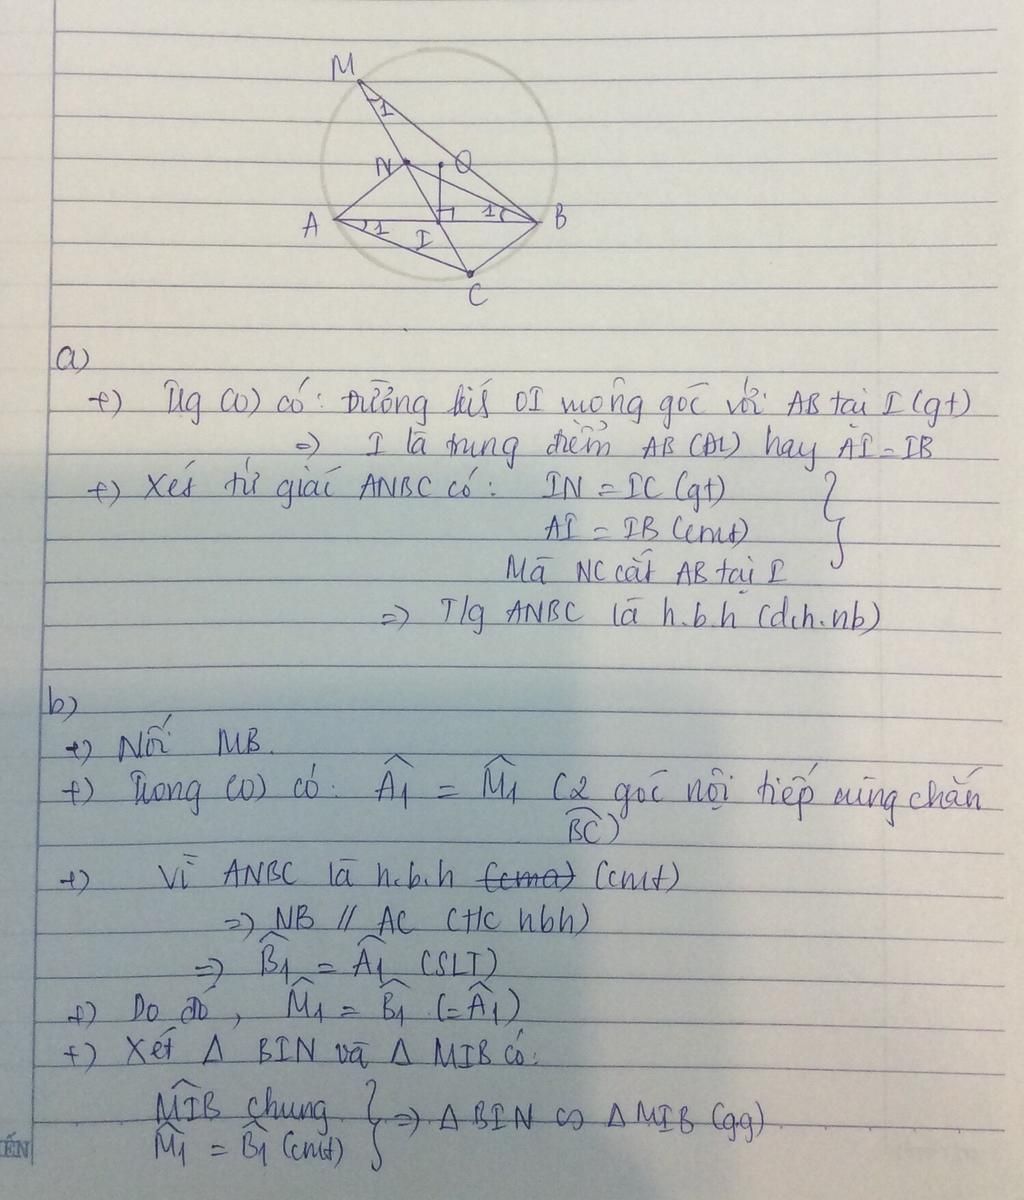 M
1
N
O
A
1
I
1
B
C
a)
+) Tr̀g (O) có: đường kính OI vuông góc với AB tại I (gt)
=> I là trung điểm AB (ĐL) hay AI = IB
+) Xét tứ giác ANBC có: IN = IC (gt)
AI = IB (cmt)
Mà NC cắt AB tại I
=> T/g ANBC là h.b.h (d.h.nb)
b)
+) Nối MB.
+) Trong (O) có: Â1 = M̂1 (2 góc nội tiếp cùng chắn
B͡C)
+) Vì ANBC là h.b.h (cma) (cmt)
=> NB // AC (t/c hbh)
=> B̂1 = Â1 (SLT)
+) Do đó, M̂1 = B̂1 (=Â1)
+) Xét Δ BIN và Δ MIB có:
M̂IB chung
M̂1 = B̂1 (cmt) } => Δ BIN ∽ Δ MIB (g.g)
ẾN